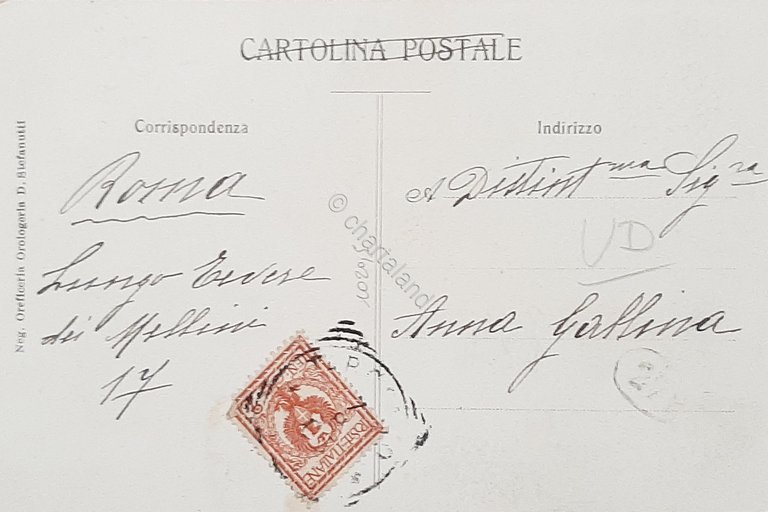 CARTOLINA POSTALE
Corrispondenza
Indirizzo
Neg. Oreficeria Orologeria D. Stefanutti
Roma
Lungo Tevere
dei Mellini
17
A Distint ma Sig ra
VD
Anna Gallina
POSTE ITALIANE
© charialand